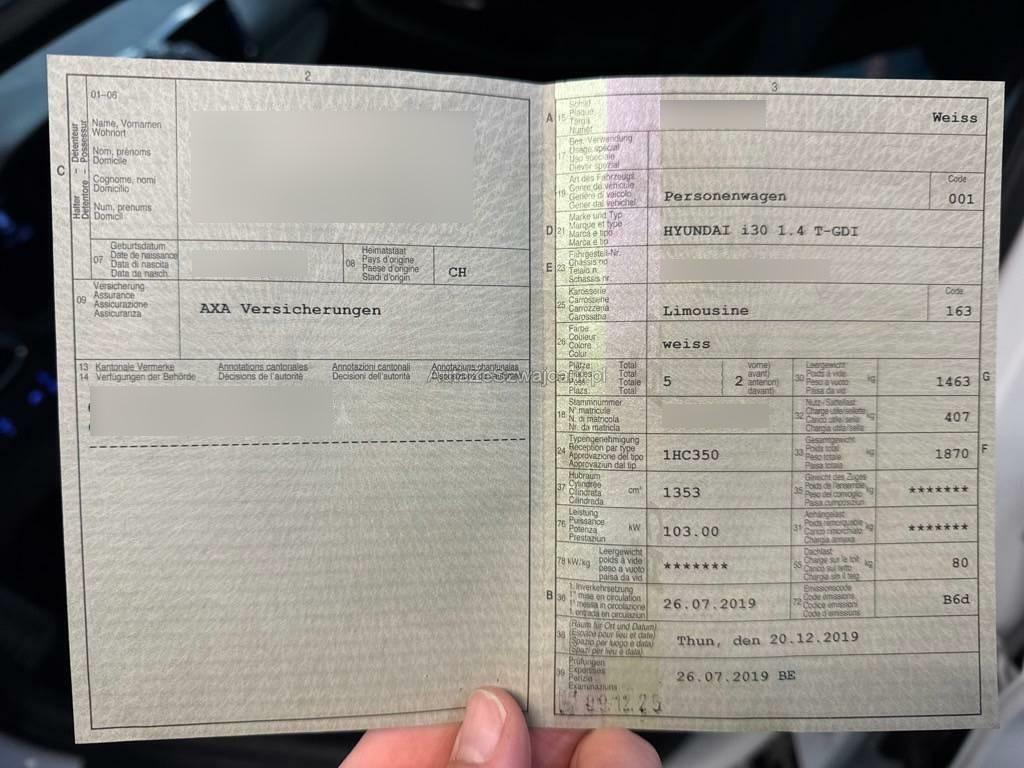 2
01–06
C
Halter – Détenteur
Detentore – Possessur
Name, Vornamen
Wohnort
Nom, prénoms
Domicile
Cognome, nomi
Domicilio
Num, prenums
Domicil
07
Geburtsdatum
Date de naissance
Data di nascita
Data da nasch.
08
Heimatstaat
Pays d'origine
Paese d'origine
Stadi d'origin
CH
09
Versicherung
Assurance
Assicurazione
Assicuranza
AXA Versicherungen
13 Kantonale Vermerke Annotations cantonales Annotazioni cantonali Annotaziuns chantunalas
14 Verfügungen der Behörde Décisions de l'autorité Decisioni dell'autorità
3
A 15
Schild
Plaque
Targa
Numer
Weiss
17
Bes. Verwendung
Usage spécial
Uso speciale
Diever spezial
19
Art des Fahrzeugs
Genre de véhicule
Genere di veicolo
Gener dal vehichel
Personenwagen
Code
001
D 21
Marke und Typ
Marque et type
Marca e tipo
Marca e tip
HYUNDAI i30 1.4 T-GDI
E 23
Fahrgestell-Nr.
Châssis no
Telaio n.
Schassis nr.
25
Karosserie
Carrosserie
Carrozzeria
Carossaria
Limousine
Code
163
26
Farbe
Couleur
Colore
Colur
weiss
Plätze Total
Places Total
Posti Totale
Plazs Total
5
2
vorne)
avant)
anteriori)
davant)
30
Leergewicht
Poids à vide
Peso a vuoto
Paisa da vid
kg
1463
G
18
Stammnummer
N° matricule
N. di matricola
Nr. da matricla
32
Nutz-/Sattellast
Charge utile/sellette
Carico utile/sella
Chargia utila/sella
kg
407
24
Typengenehmigung
Réception par type
Approvazione del tipo
Approvaziun dal tip
1HC350
33
Gesamtgewicht
Poids total
Peso totale
Paisa totala
kg
1870
F
37
Hubraum
Cylindrée
Cilindrata
Cilindrada
cm³
1353
35
Gewicht des Zuges
Poids de l'ensemble
Peso del convoglio
Paisa cumposiziun
kg
*******
76
Leistung
Puissance
Potenza
Prestaziun
kW
103.00
31
Anhängelast
Poids remorquable
Carico rimorchiato
Chargia annexa
kg
*******
78 kW/kg
Leergewicht
poids à vide
peso a vuoto
paisa da vid
*******
55
Dachlast
Charge sur le toit
Carico sul tetto
Chargia sin il tetg
kg
80
B 36
1. Inverkehrsetzung
1re mise en circulation
1a messa in circolazione
1. entrada en circulaziun
26.07.2019
72
Emissionscode
Code émissions
Codice emissioni
Code d'emissiuns
B6d
38
(Raum für Ort und Datum)
(Espace pour lieu et date)
(Spazio per luogo e data)
(Spazi per lieu e data)
Thun, den 20.12.2019
39
Prüfungen
Expertises
Perizie
Examinaziuns
26.07.2019 BE